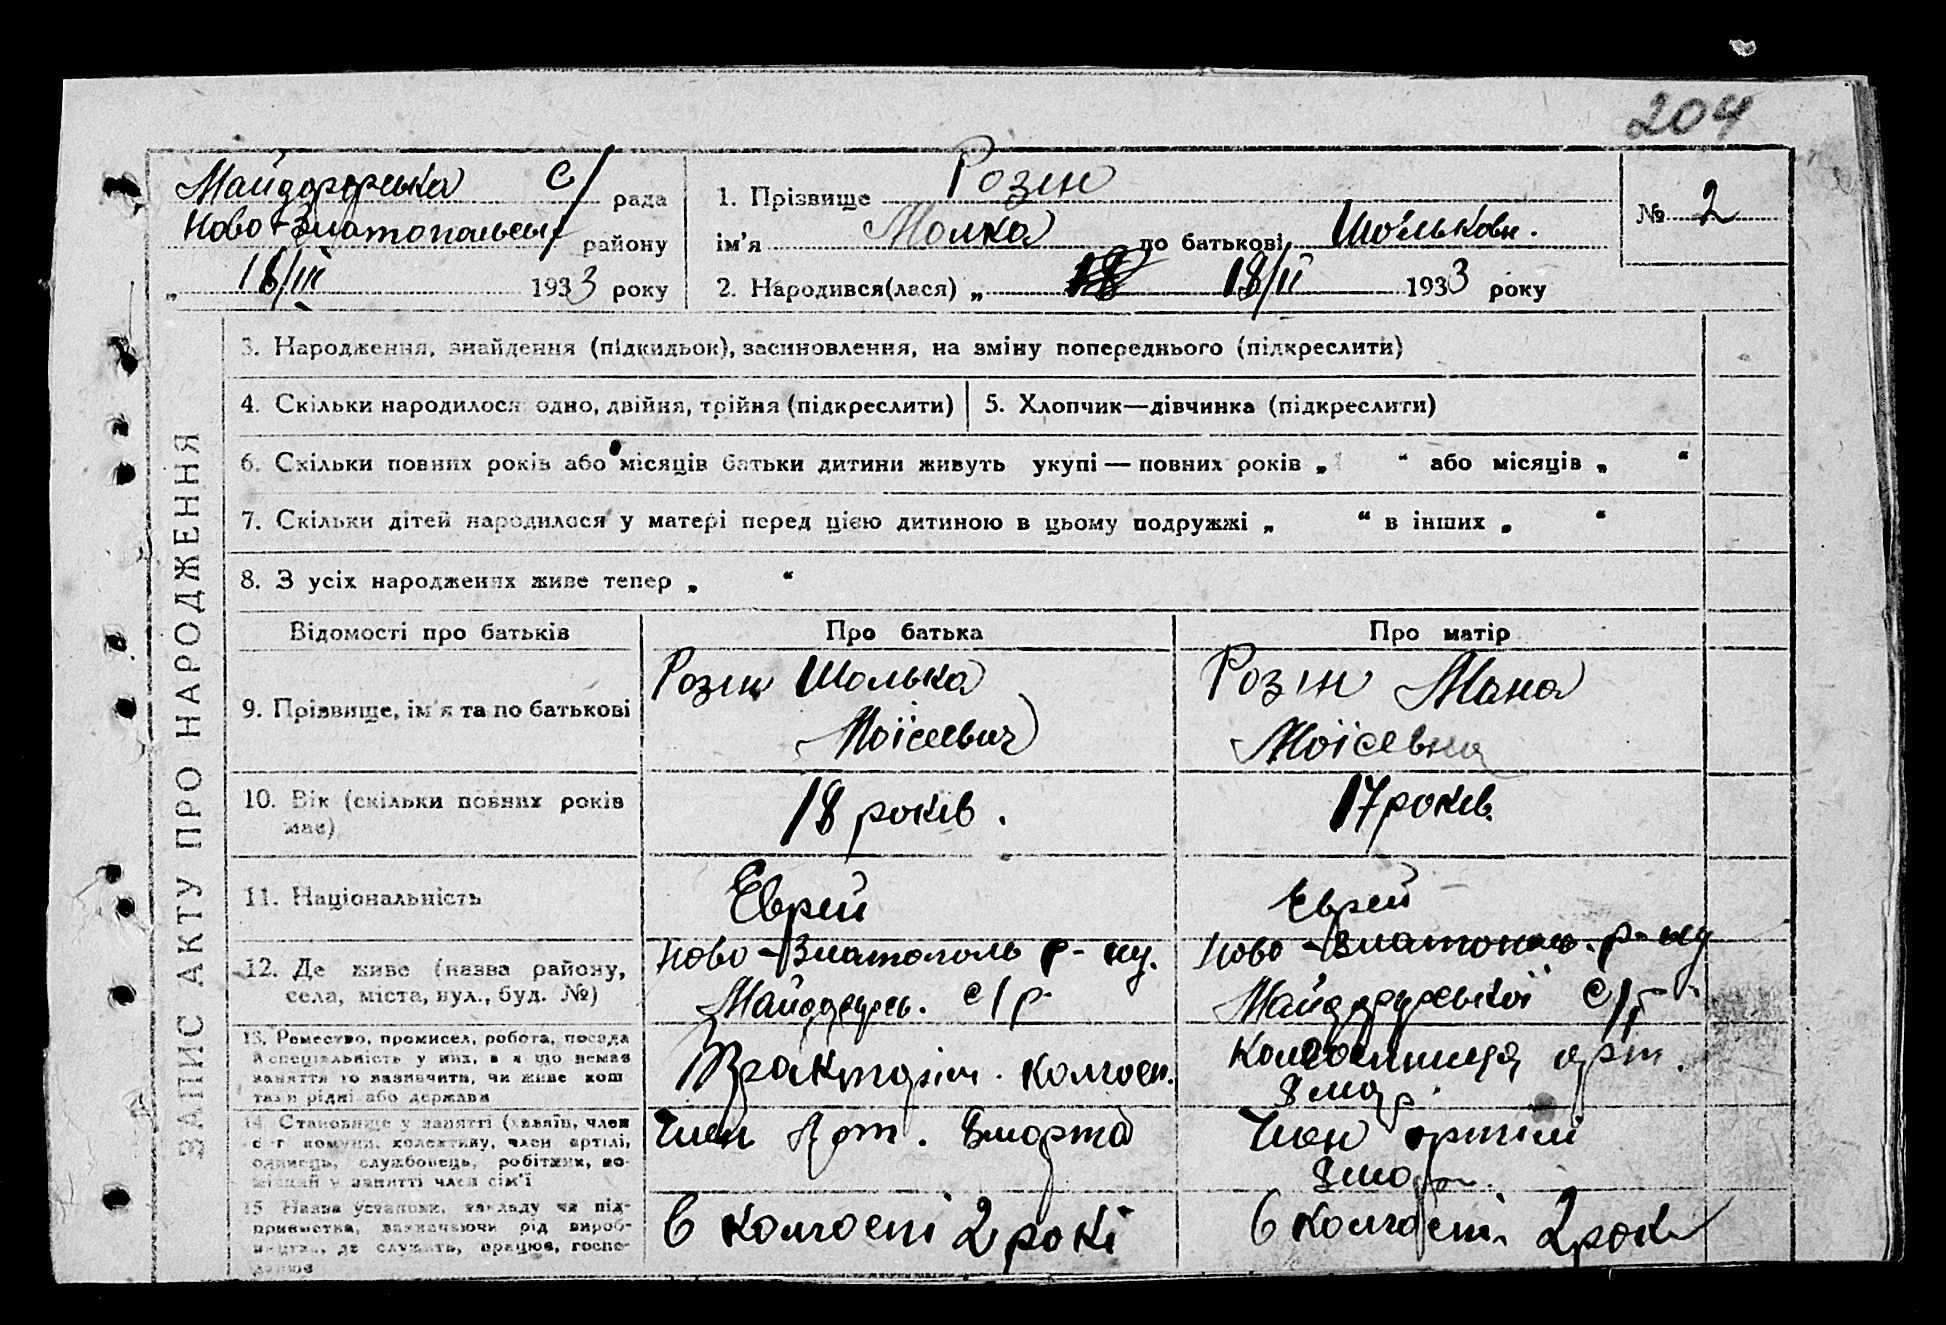 204
Майдорфська с/ рада
Ново-Златопольськ району
„ 18/III 1933 року
1. Прізвище Розін
ім'я Молка по батькові Шольковн.
2. Народився(лася) „ 18/II 1933 року
№ 2
ЗАПИС АКТУ ПРО НАРОДЖЕННЯ
3. Народження, знайдення (підкидьок), засиновлення, на зміну попереднього (підкреслити)
4. Скільки народилося: одно, двійня, трійня (підкреслити)
5. Хлопчик—дівчинка (підкреслити)
6. Скільки повних років або місяців батьки дитини живуть укупі — повних років „ “ або місяців „ “
7. Скільки дітей народилося у матері перед цією дитиною в цьому подружжі „ “ в інших „ “
8. З усіх народжених живе тепер „ “
Відомості про батьків
Про батька
Про матір
9. Прізвище, ім'я та по батькові
Розін Шолька
Моїсеевич
Розін Мана
Моїсевна
10. Вік (скільки повних років
має)
18 років.
17 років.
11. Національність
Еврей
Еврей
12. Де живе (назва району,
села, міста, вул., буд. №)
Ново-Златополь р-ну.
с/р
Ново-Златополь. р-ну
с/р
13. Ремество, промисел, робота, посада
й спеціяльність у них, а я що немає
заняття то зазначити, чи живе кош
тами рідні або держави
Тракторіст. колгосп.
Колгоспниця арт.
14. Становище у занятті (хазяїн, член
с-г комуни, колективу, член артілі,
одинець, службовець, робітник, по-
у занятті член сім'ї
Член Арт.
Член артілі
15. Назва установи, закладу чи під-
приємства, зазначаючи рід вироб-
ництва, де служить, працює, госпо-
дарює
в колгоспі 2 рокі
в колгоспі 2 рокі